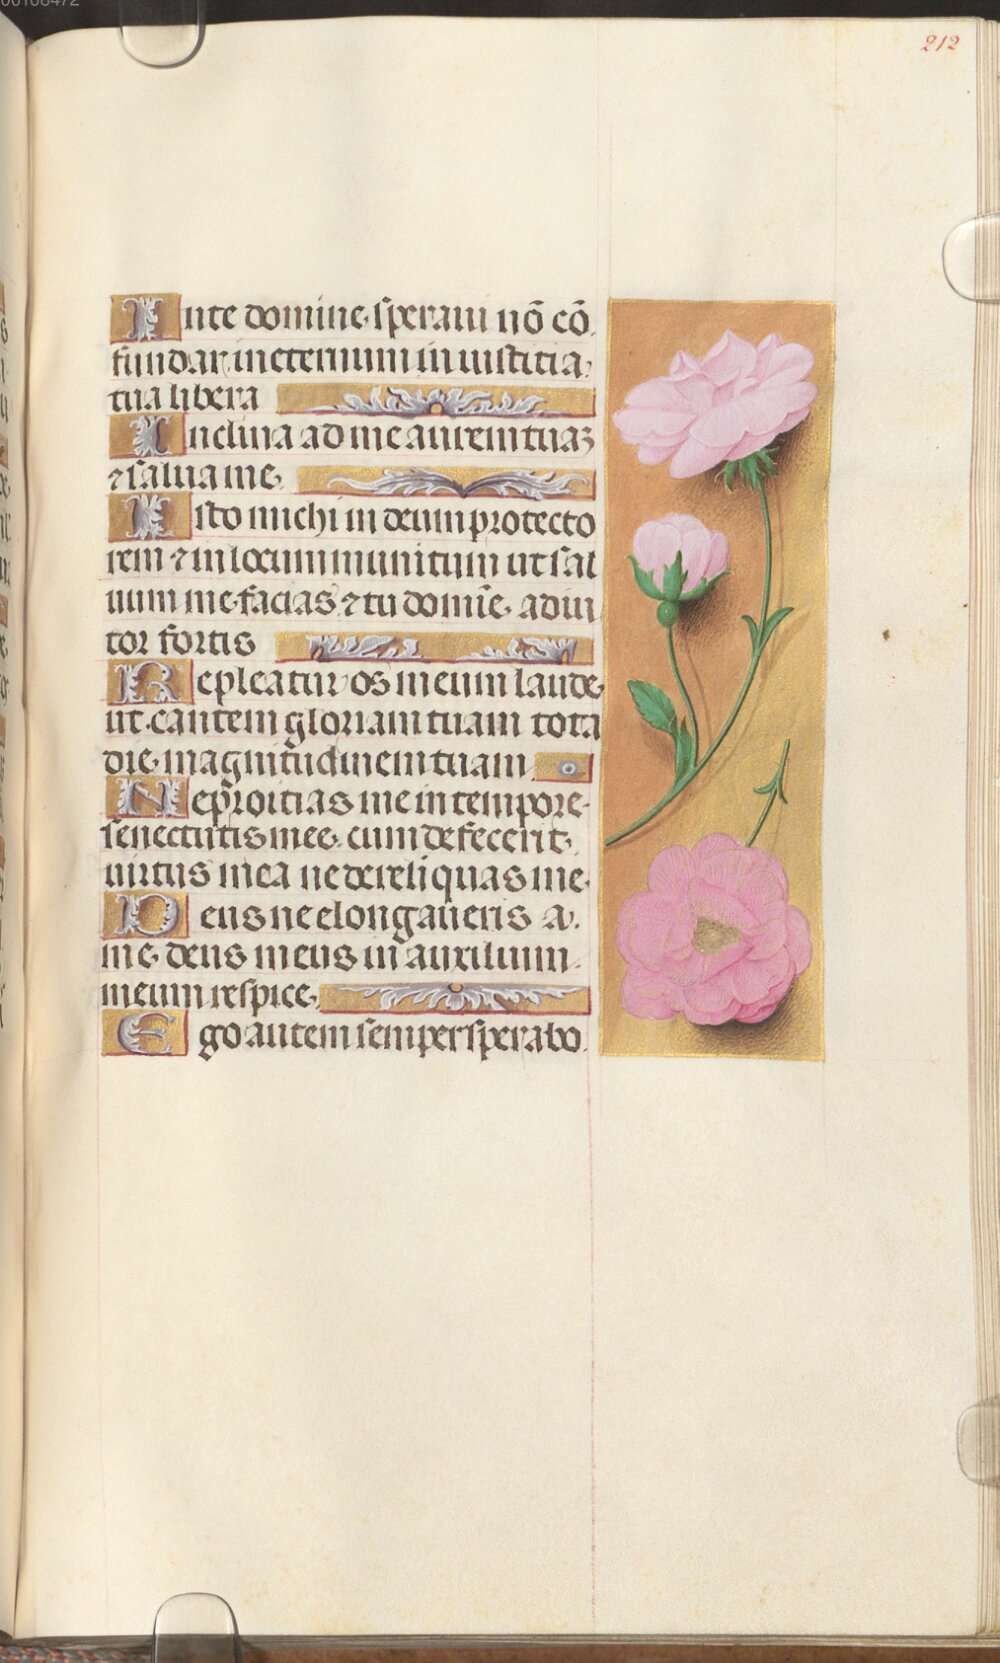 00108472
212
In te domine speraui nō cō
fundar in eternum in iusticia
tua libera
Inclina ad me aurem tuaꝫ
⁊ salua me
Esto michi in deum protecto
rem ⁊ in locum munitum ut sal
uum me facias ⁊ tu domīe adiu
tor fortis
Repleatur os meum laude
ut cantem gloriam tuam tota
die magnitudinem tuam
Ne proicias me in tempore
senectutis mee cum defecerit
uirtus mea ne derelinquas me
Deus ne elongaueris a
me deus meus in auxilium
meum respice
Ego autem semper sperabo